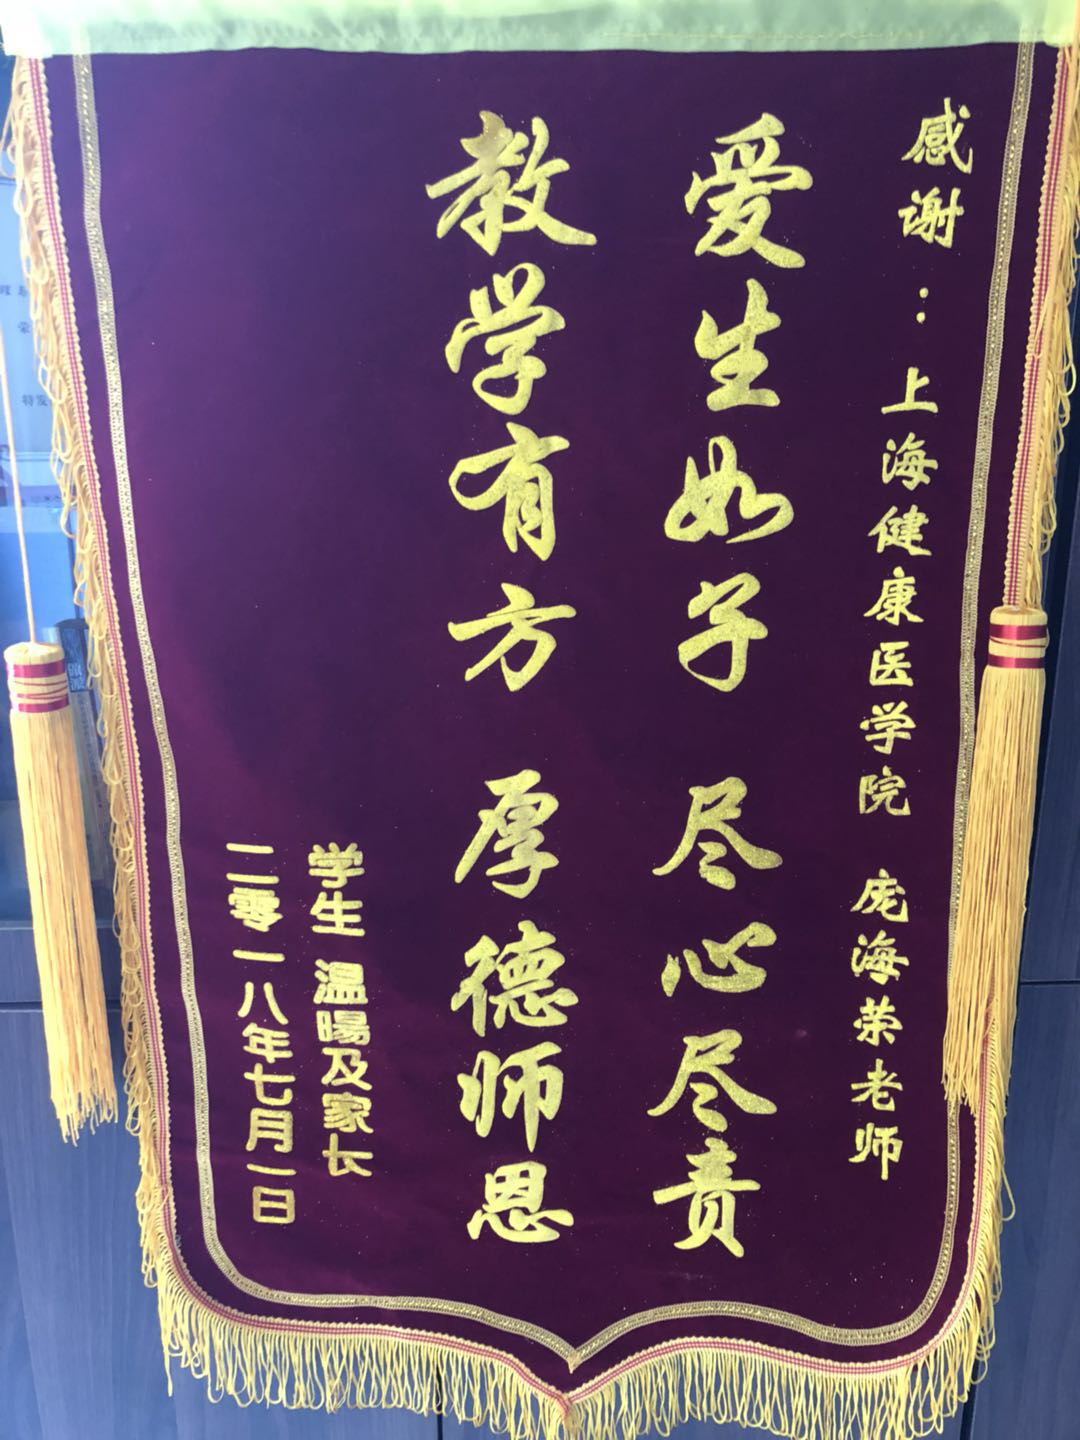 感谢：上海健康医学院 庞海荣老师
爱生如子 尽心尽责
教学有方 厚德师恩
学生 温暘及家长
二零一八年七月一日
特发